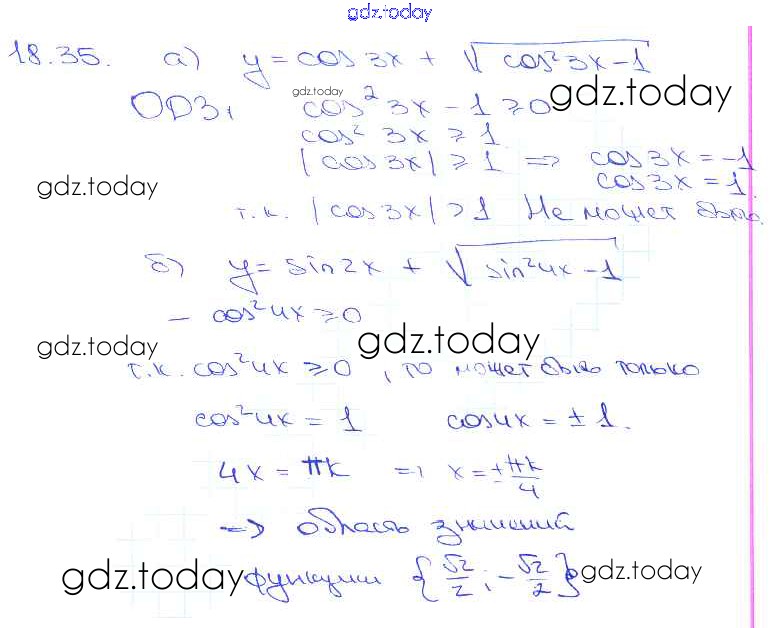 gdz.today
18.35. а) y = cos 3x + √(cos²3x − 1)
gdz.today
ОДЗ, cos² 3x − 1 ≥ 0
gdz.today
cos² 3x ≥ 1
|cos 3x| ≥ 1 => cos 3x = −1
cos 3x = 1.
gdz.today
т.к. |cos 3x| > 1 Не может быть.
б) y = sin 2x + √(sin²4x − 1)
− cos²4x ≥ 0
gdz.today
gdz.today
т.к. cos²4x ≥ 0, то может быть только
cos²4x = 1 cos 4x = ± 1.
4x = πk => x = ± πk/4
=> область значений
gdz.today
функции {√2/2; −√2/2}
gdz.today